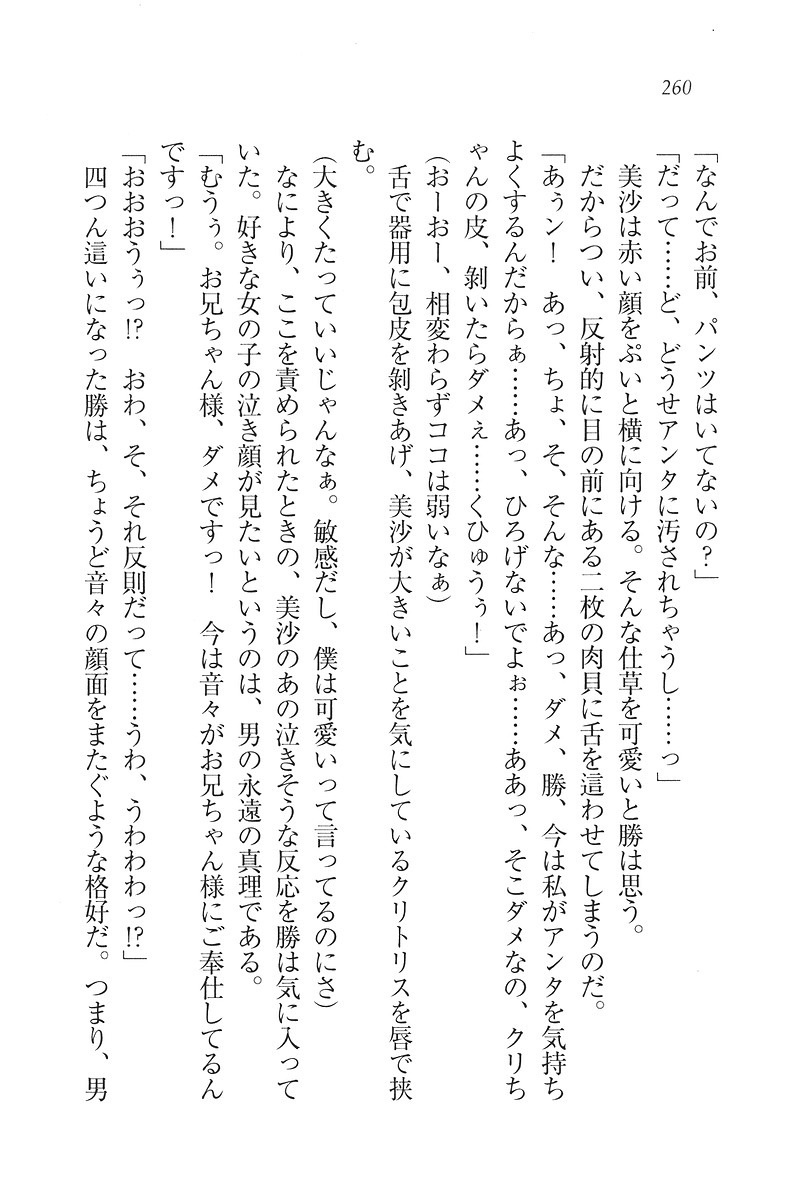 260
「なんでお前、パンツはいてないの？」
「だって……ど、どうせアンタに汚されちゃうし……っ」
　美沙は赤い顔をぷいと横に向ける。そんな仕草を可愛いと勝は思う。
　だからつい、反射的に目の前にある二枚の肉貝に舌を這わせてしまうのだ。
「あぅン！　あっ、ちょ、そ、そんな……あっ、ダメ、勝、今は私がアンタを気持ち
よくするんだからぁ……あっ、ひろげないでよぉ……ああっ、そこダメなの、クリち
ゃんの皮、剝いたらダメぇ……くひゅうぅ！」
（おーおー、相変わらずココは弱いなぁ）
　舌で器用に包皮を剝きあげ、美沙が大きいことを気にしているクリトリスを唇で挟
む。
（大きくたっていいじゃんなぁ。敏感だし、僕は可愛いって言ってるのにさ）
　なにより、ここを責められたときの、美沙のあの泣きそうな反応を勝は気に入って
いた。好きな女の子の泣き顔が見たいというのは、男の永遠の真理である。
「むうぅ。お兄ちゃん様、ダメですっ！　今は音々がお兄ちゃん様にご奉仕してるん
ですっ！」
「おおおうぅっ!?　おわ、そ、それ反則だって……うわ、うわわわっ!?」
　四つん這いになった勝は、ちょうど音々の顔面をまたぐような格好だ。つまり、男